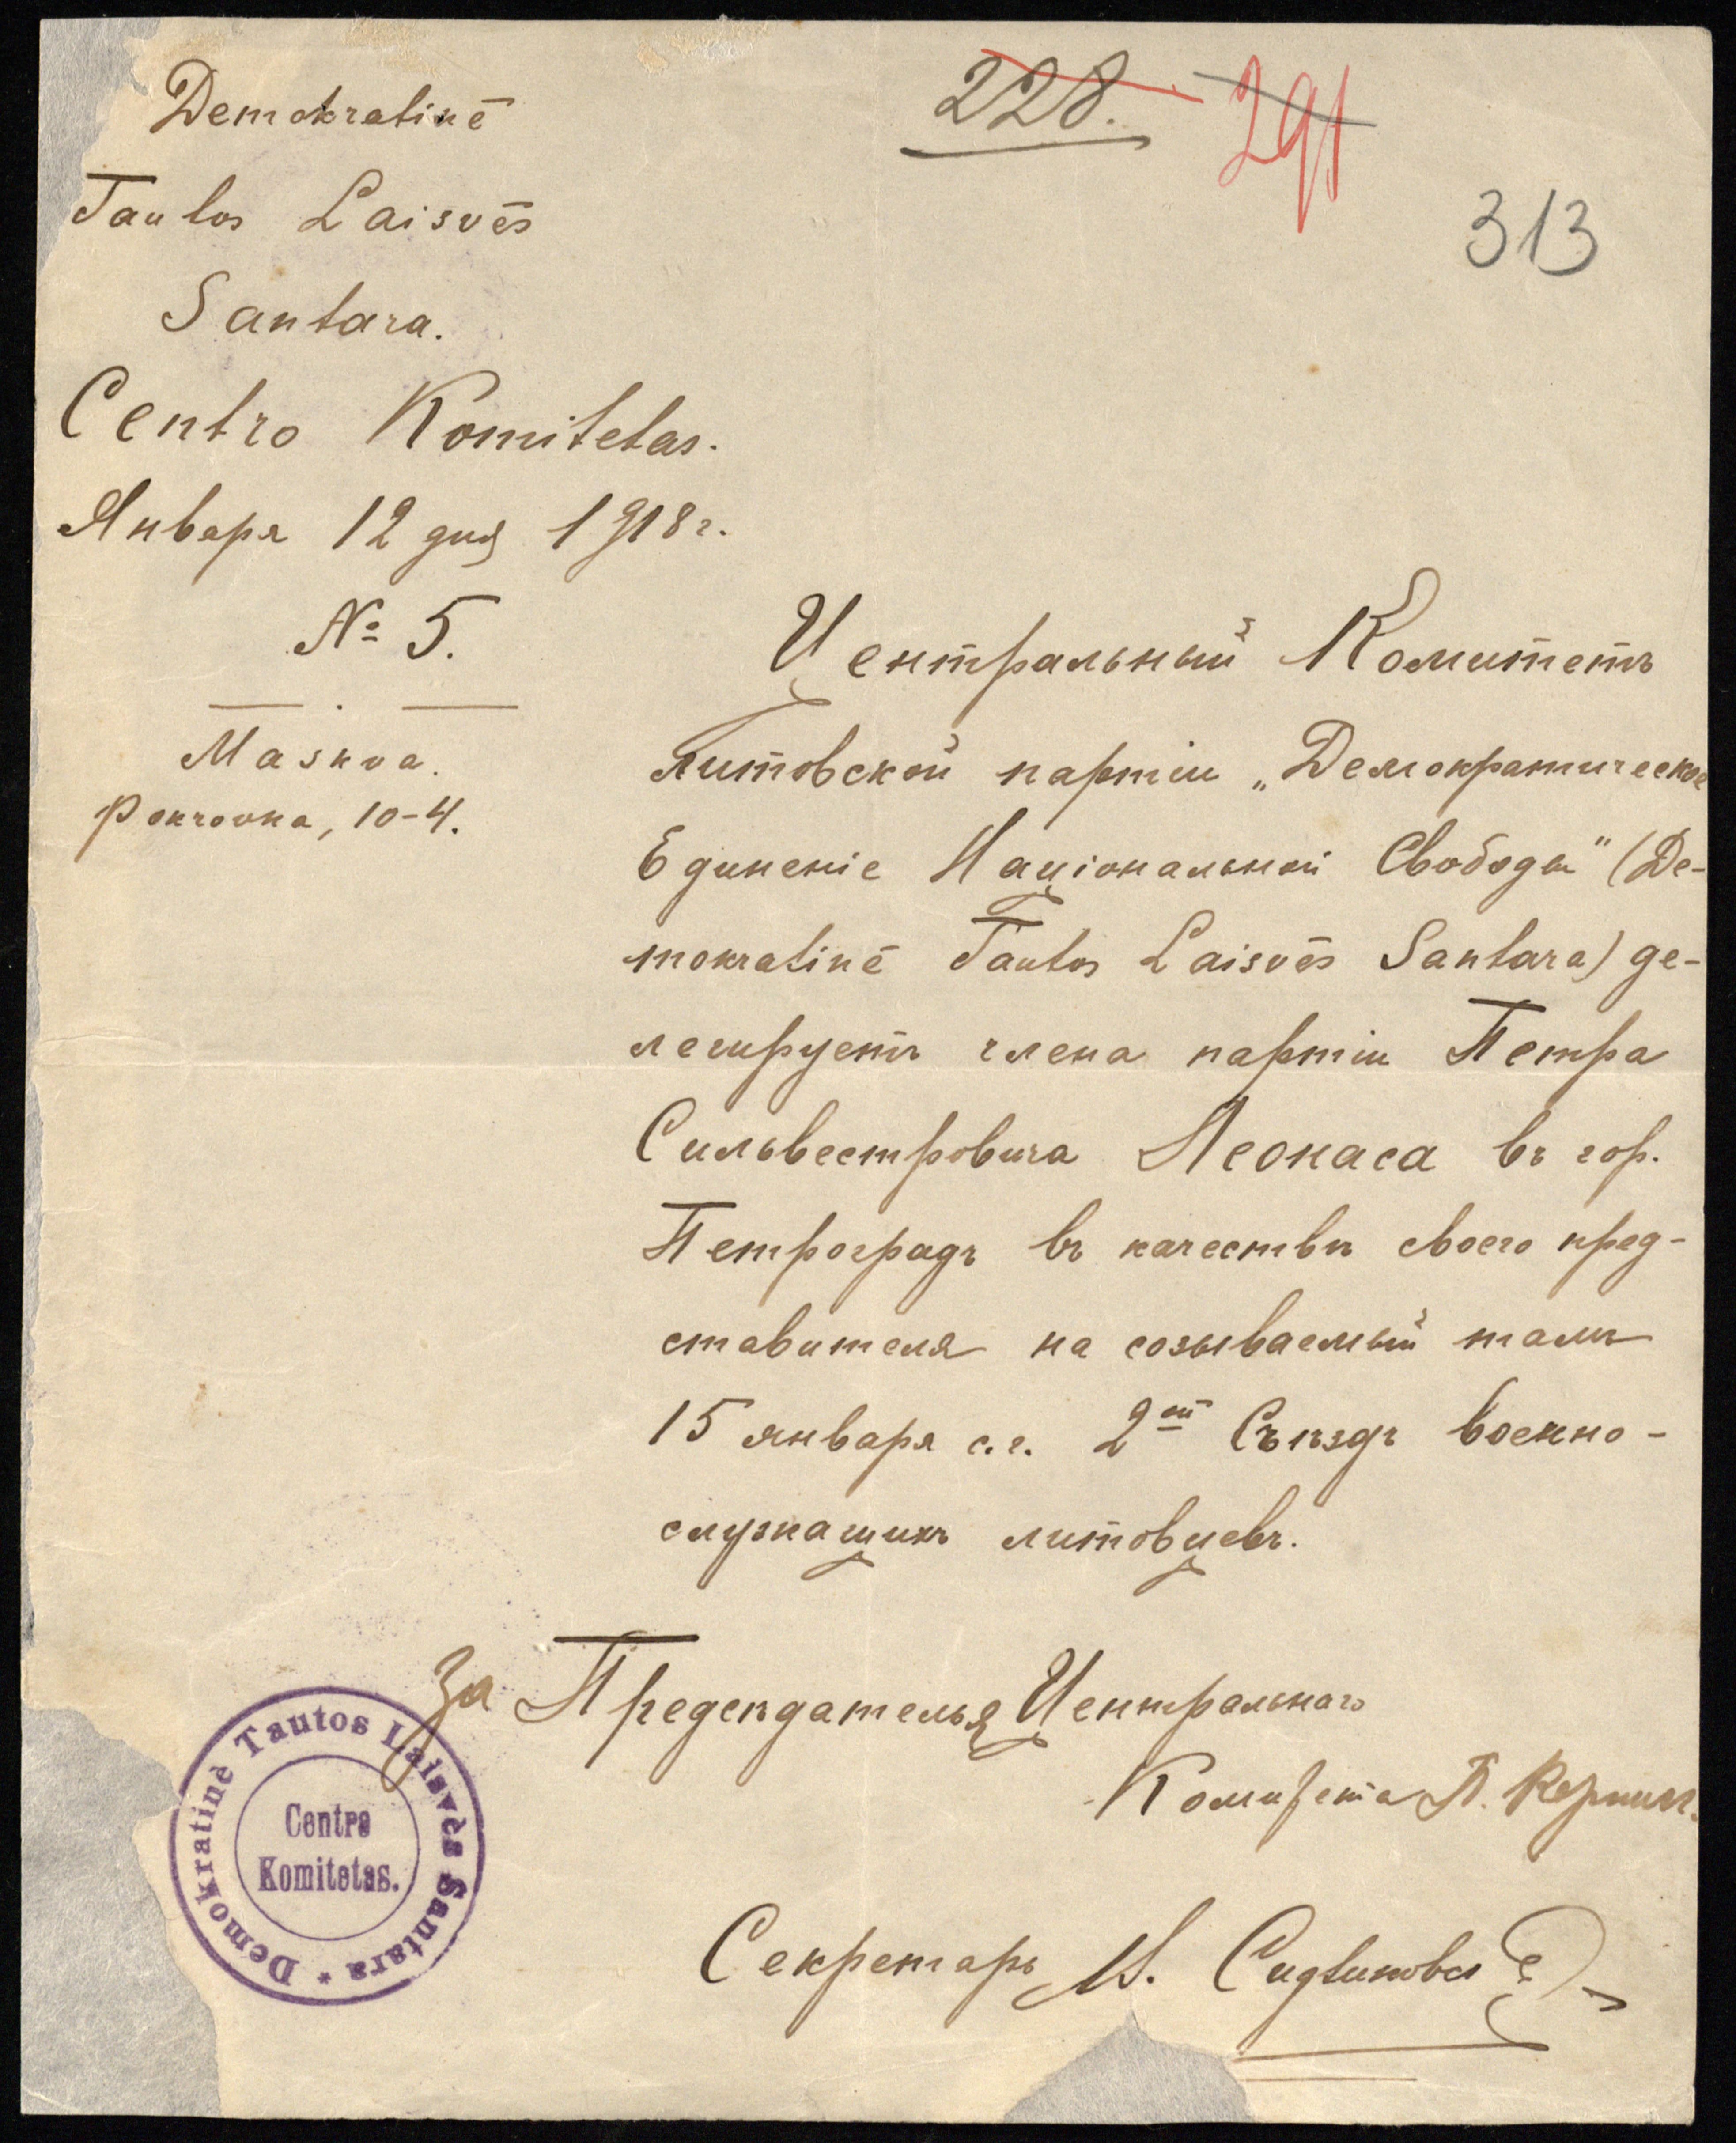 228.
291
313
Demokratinė
Tautos Laisvės
Santara.
Centro Komitetas.
Января 12 дня 1918 г.
№ 5.
Maskva.
Pokrovka, 10-4.
Центральный Комитетъ
литовской партіи „Демократическое
Единеніе Національной Свободы" (De-
mokratinė Tautos Laisvės Santara) де-
легируетъ члена партіи Петра
Сильвестровича Леонаса въ гор.
Петроградъ въ качествѣ своего пред-
ставителя на созываемый тамъ
15 января с.г. 2й Съѣздъ военно-
служащихъ литовцевъ.
За Предсѣдателья Центральнаго
Комитета П.
Секретарь М.
Demokratinė Tautos Laisvės Santara *
Centro
Komitetas.